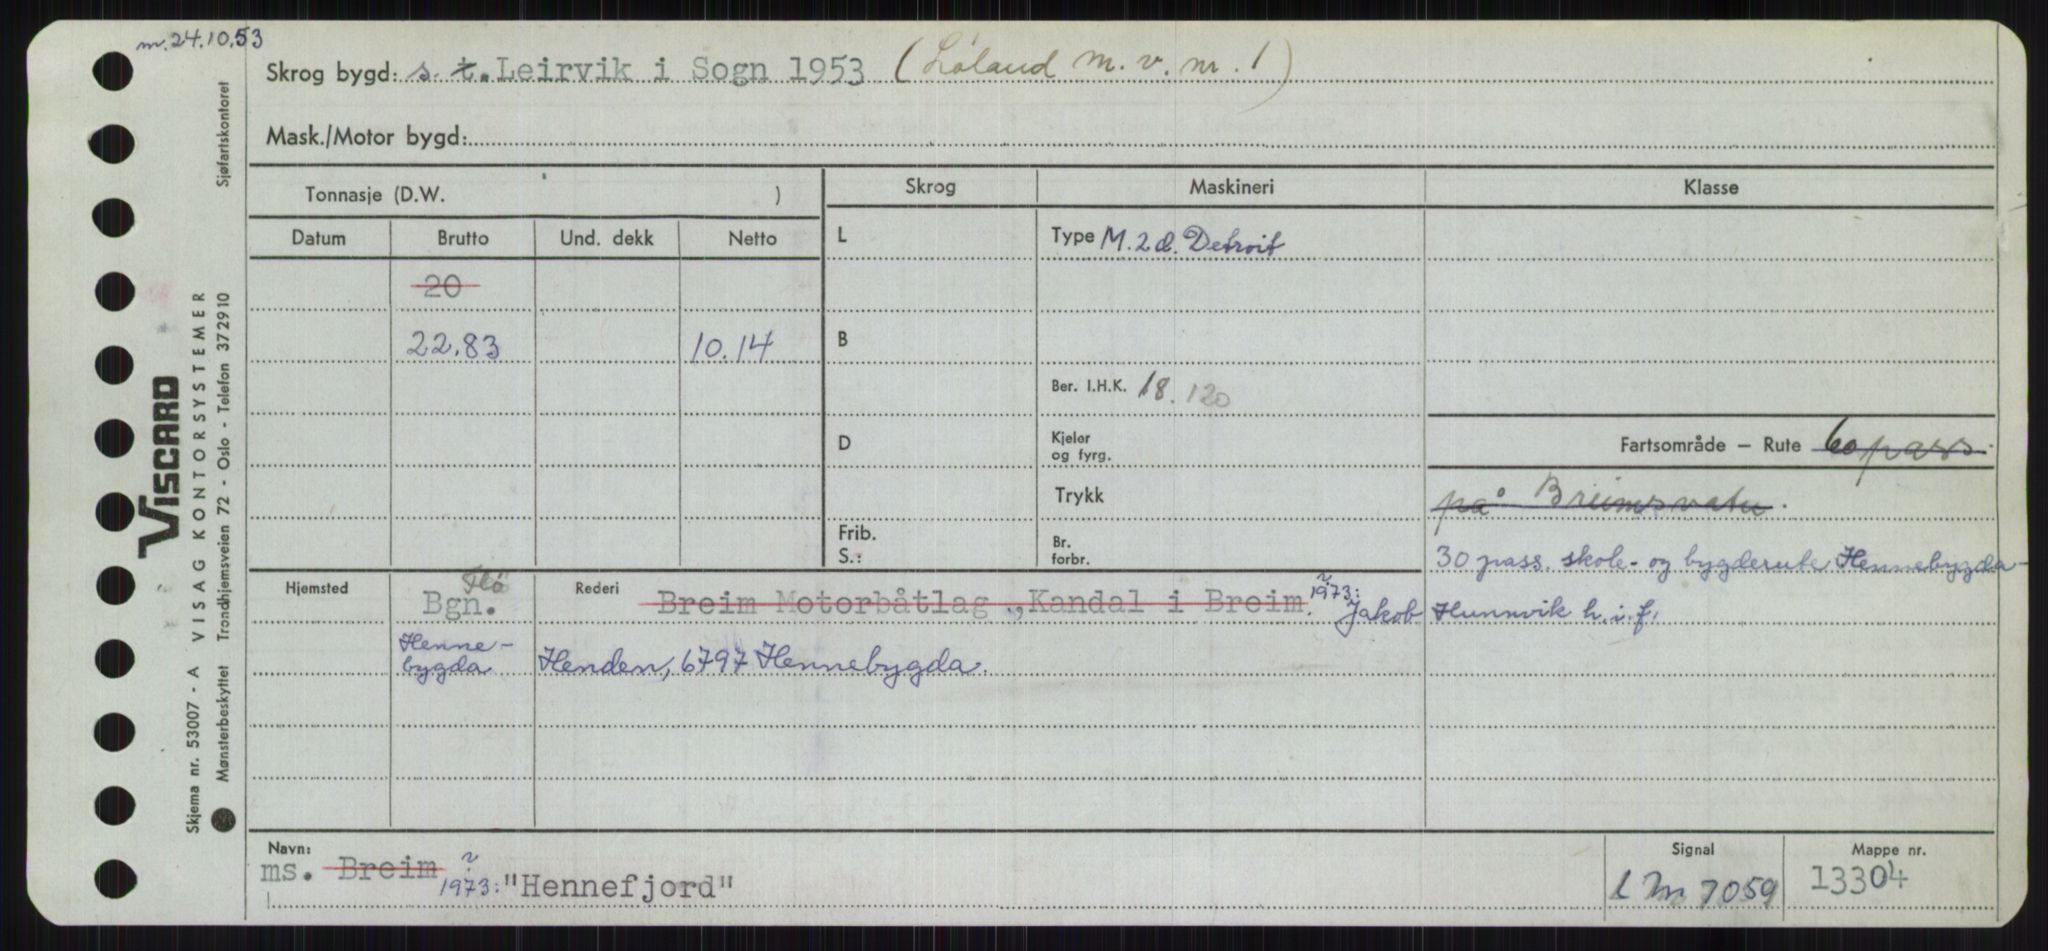 m. 24.10.53
Skrog bygd: s. t. Leirvik i Sogn 1953 (Løland m. v. nr. 1)
Mask./Motor bygd:
Tonnasje (D.W. )
Skrog
Maskineri
Klasse
Datum
Brutto
Und. dekk
Netto
L
Type M. 2 d. Detroit
20
22.83
10.14
B
Ber. I.H.K. 18. 120
D
Kjeler
og fyrg.
Fartsområde – Rute 60 pass.
Trykk
på Breimsvatn.
Frib.
S.:
Br.
forbr.
30 pass. skole- og bygderute Hennebygda
Hjemsted
Flø
Bgn.
Rederi
Breim Motorbåtlag "Kandal i Breim.
1973: Jakob Hunnvik h. i. f.
Henne-
bygda
Henden, 6797 Hennebygda.
Navn:
ms. Breim 1973: "Hennefjord"
Signal
LM 7059
Mappe nr.
13304
Sjøfartskontoret
VISCARD
VISAG KONTORSYSTEMER
Skjema nr. 53007 - A
Mønsterbeskyttet Trondhjemsveien 72 - Oslo - Telefon 372910